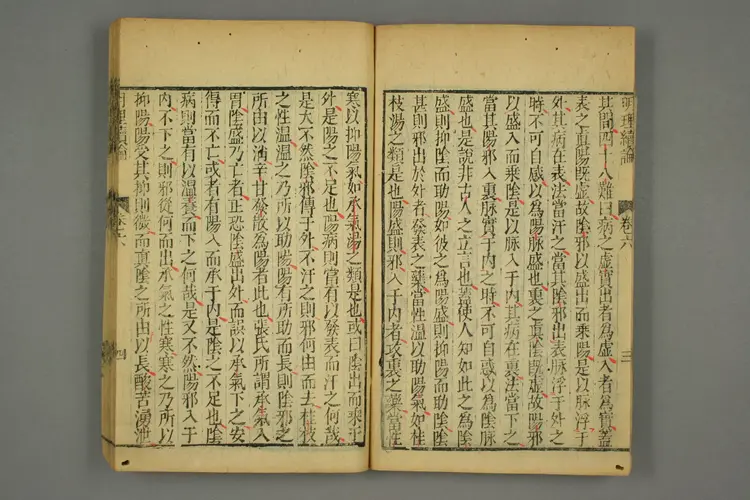 明理續論
卷六
三
其間四十八難曰病之虛實出者為虛入者為實蓋
表之真陽既虛故陰邪以盛出而乘陽是以脈浮于
外其病在表法當汗之當其陰邪出表脈浮于外之
時不可自惑以為陽脈盛也裏之真陰既虛故陽邪
以盛入而乘陰是以脈入于內其病在裏法當下之
當其陽邪入裏脈實于內之時不可自惑以為陰脈
盛也是說非古人之立言也蓋使人知如此之為陰
盛則抑陰而助陽如彼之為陽盛則抑陽而助陰陰
甚則邪出於外者發表之藥當性溫以助陽氣如桂
枝湯之類是也陽盛則邪入于內者攻裏之藥當性
寒以抑陽氣如承氣湯之類是也或曰陰出而乘于
外是陽之不足也陽病則當有以發表而汗之何哉
是大不然陰邪傳于外不汗之則邪何由而去桂枝
之性溫溫之乃所以助陽陽有所助而長則陰邪之
所由以消辛甘發散為陽者此也張氏所謂承氣入
胃陰盛乃亡者正恐陰盛出外而誤以承氣下之安
得而不亡或者有陽入而承于內是陰之不足也陰
病則當有以溫養而下之何哉是又不然陽邪入于
內不下之則邪從何而出承氣之性寒寒之乃所以
抑陽陽受其抑則微而真陰之所由以長酸苦湧泄
卷六
四